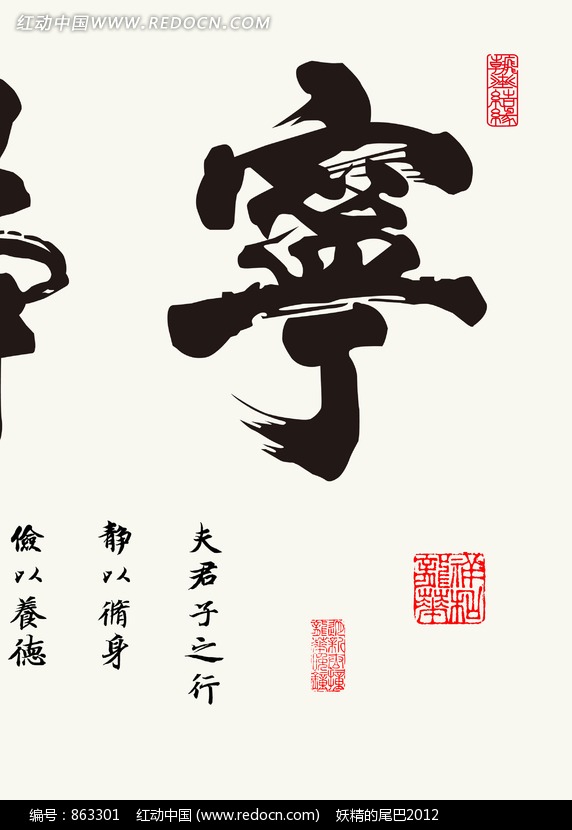 红动中国 WWW.REDOCN.COM
寧
夫君子之行
静以脩身
儉以養德
祥和
編号：863301 红动中国 (www.redocn.com) 妖精的尾巴2012